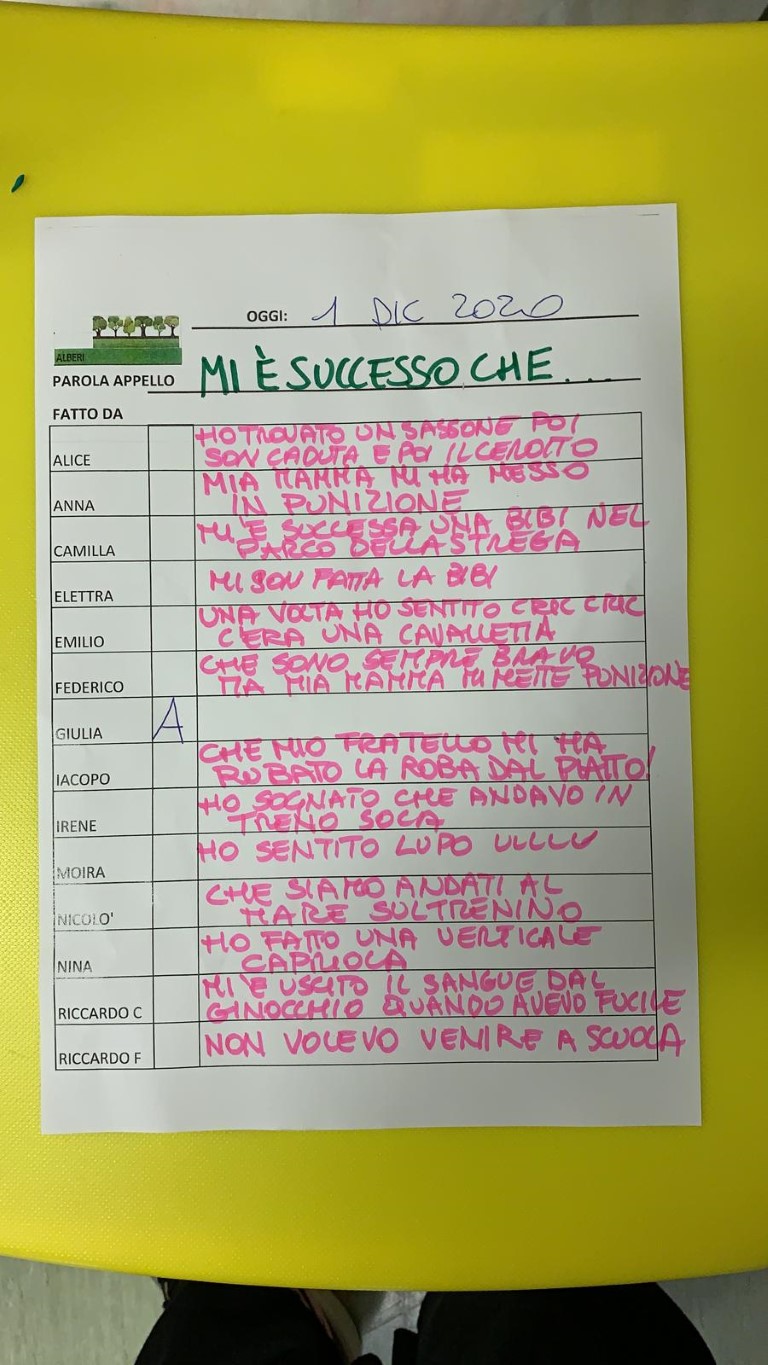 OGGI: 1 DIC 2020
ALBERI
PAROLA APPELLO MI È SUCCESSO CHE...
FATTO DA
HO TROVATO UN SASSONE POI
ALICE SON CADUTA E POI IL CEROTTO
MIA MAMMA MI HA MESSO
ANNA IN PUNIZIONE
MI È SUCCESSA UNA BIBI NEL
CAMILLA PARCO DELLA STREGA
ELETTRA MI SON FATTA LA BIBI
UNA VOLTA HO SENTITO CRIC CRIC
EMILIO C'ERA UNA CAVALLETTA
CHE SONO SEMPRE BRAVO
FEDERICO MA MIA MAMMA MI METTE PUNIZIONE
GIULIA A
CHE MIO FRATELLO MI HA
IACOPO RUBATO LA ROBA DAL PIATTO!
HO SOGNATO CHE ANDAVO IN
IRENE TRENO SOLA
MOIRA HO SENTITO LUPO ULLLU
CHE SIAMO ANDATI AL
NICOLO' MARE SUL TRENINO
HO FATTO UNA VERTICALE
NINA CAPRIOLA
MI È USCITO IL SANGUE DAL
RICCARDO C GINOCCHIO QUANDO AVEVO FUCILE
RICCARDO F NON VOLEVO VENIRE A SCUOLA